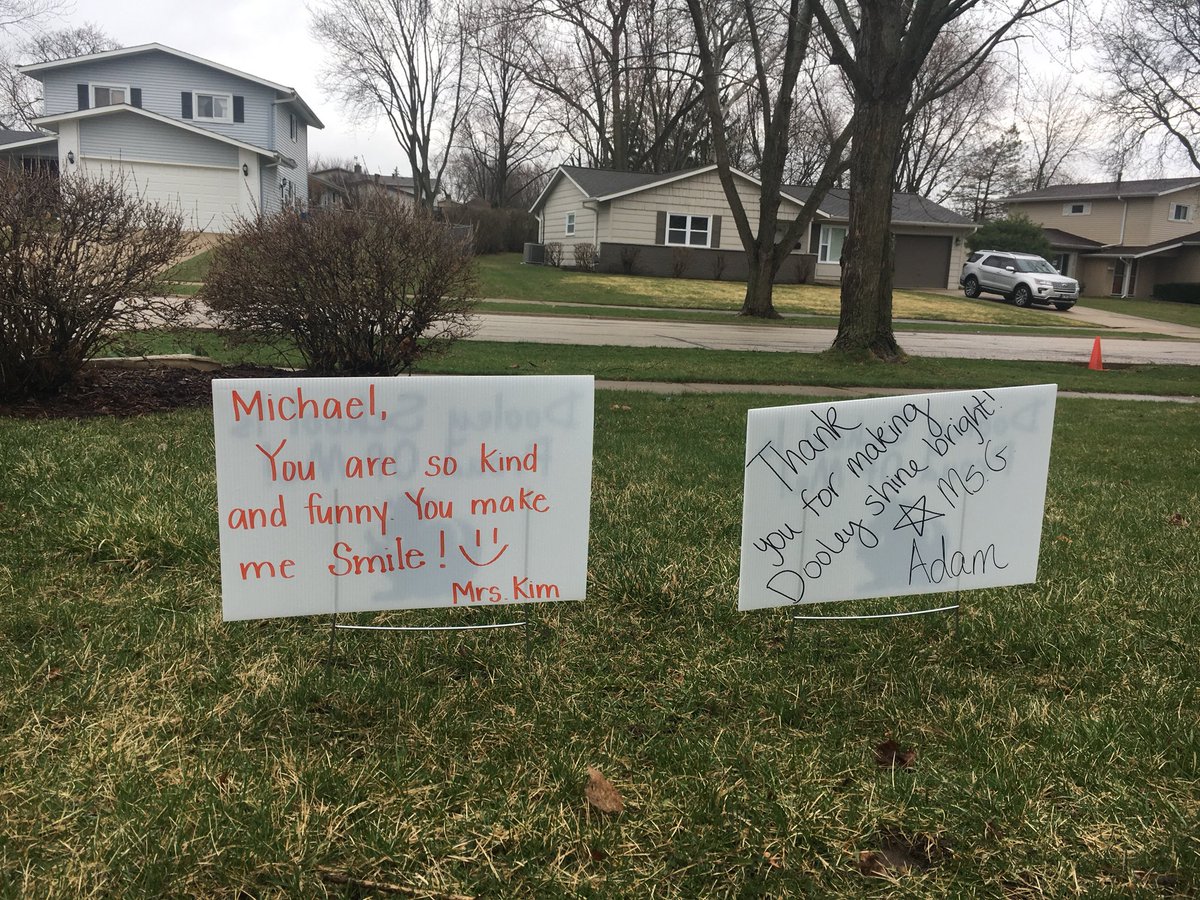 Michael,
You are so kind
and funny. You make
me Smile!
Mrs. Kim
Thank
you for making
Dooley shine bright!
Ms. G
Adam
Dooley School's